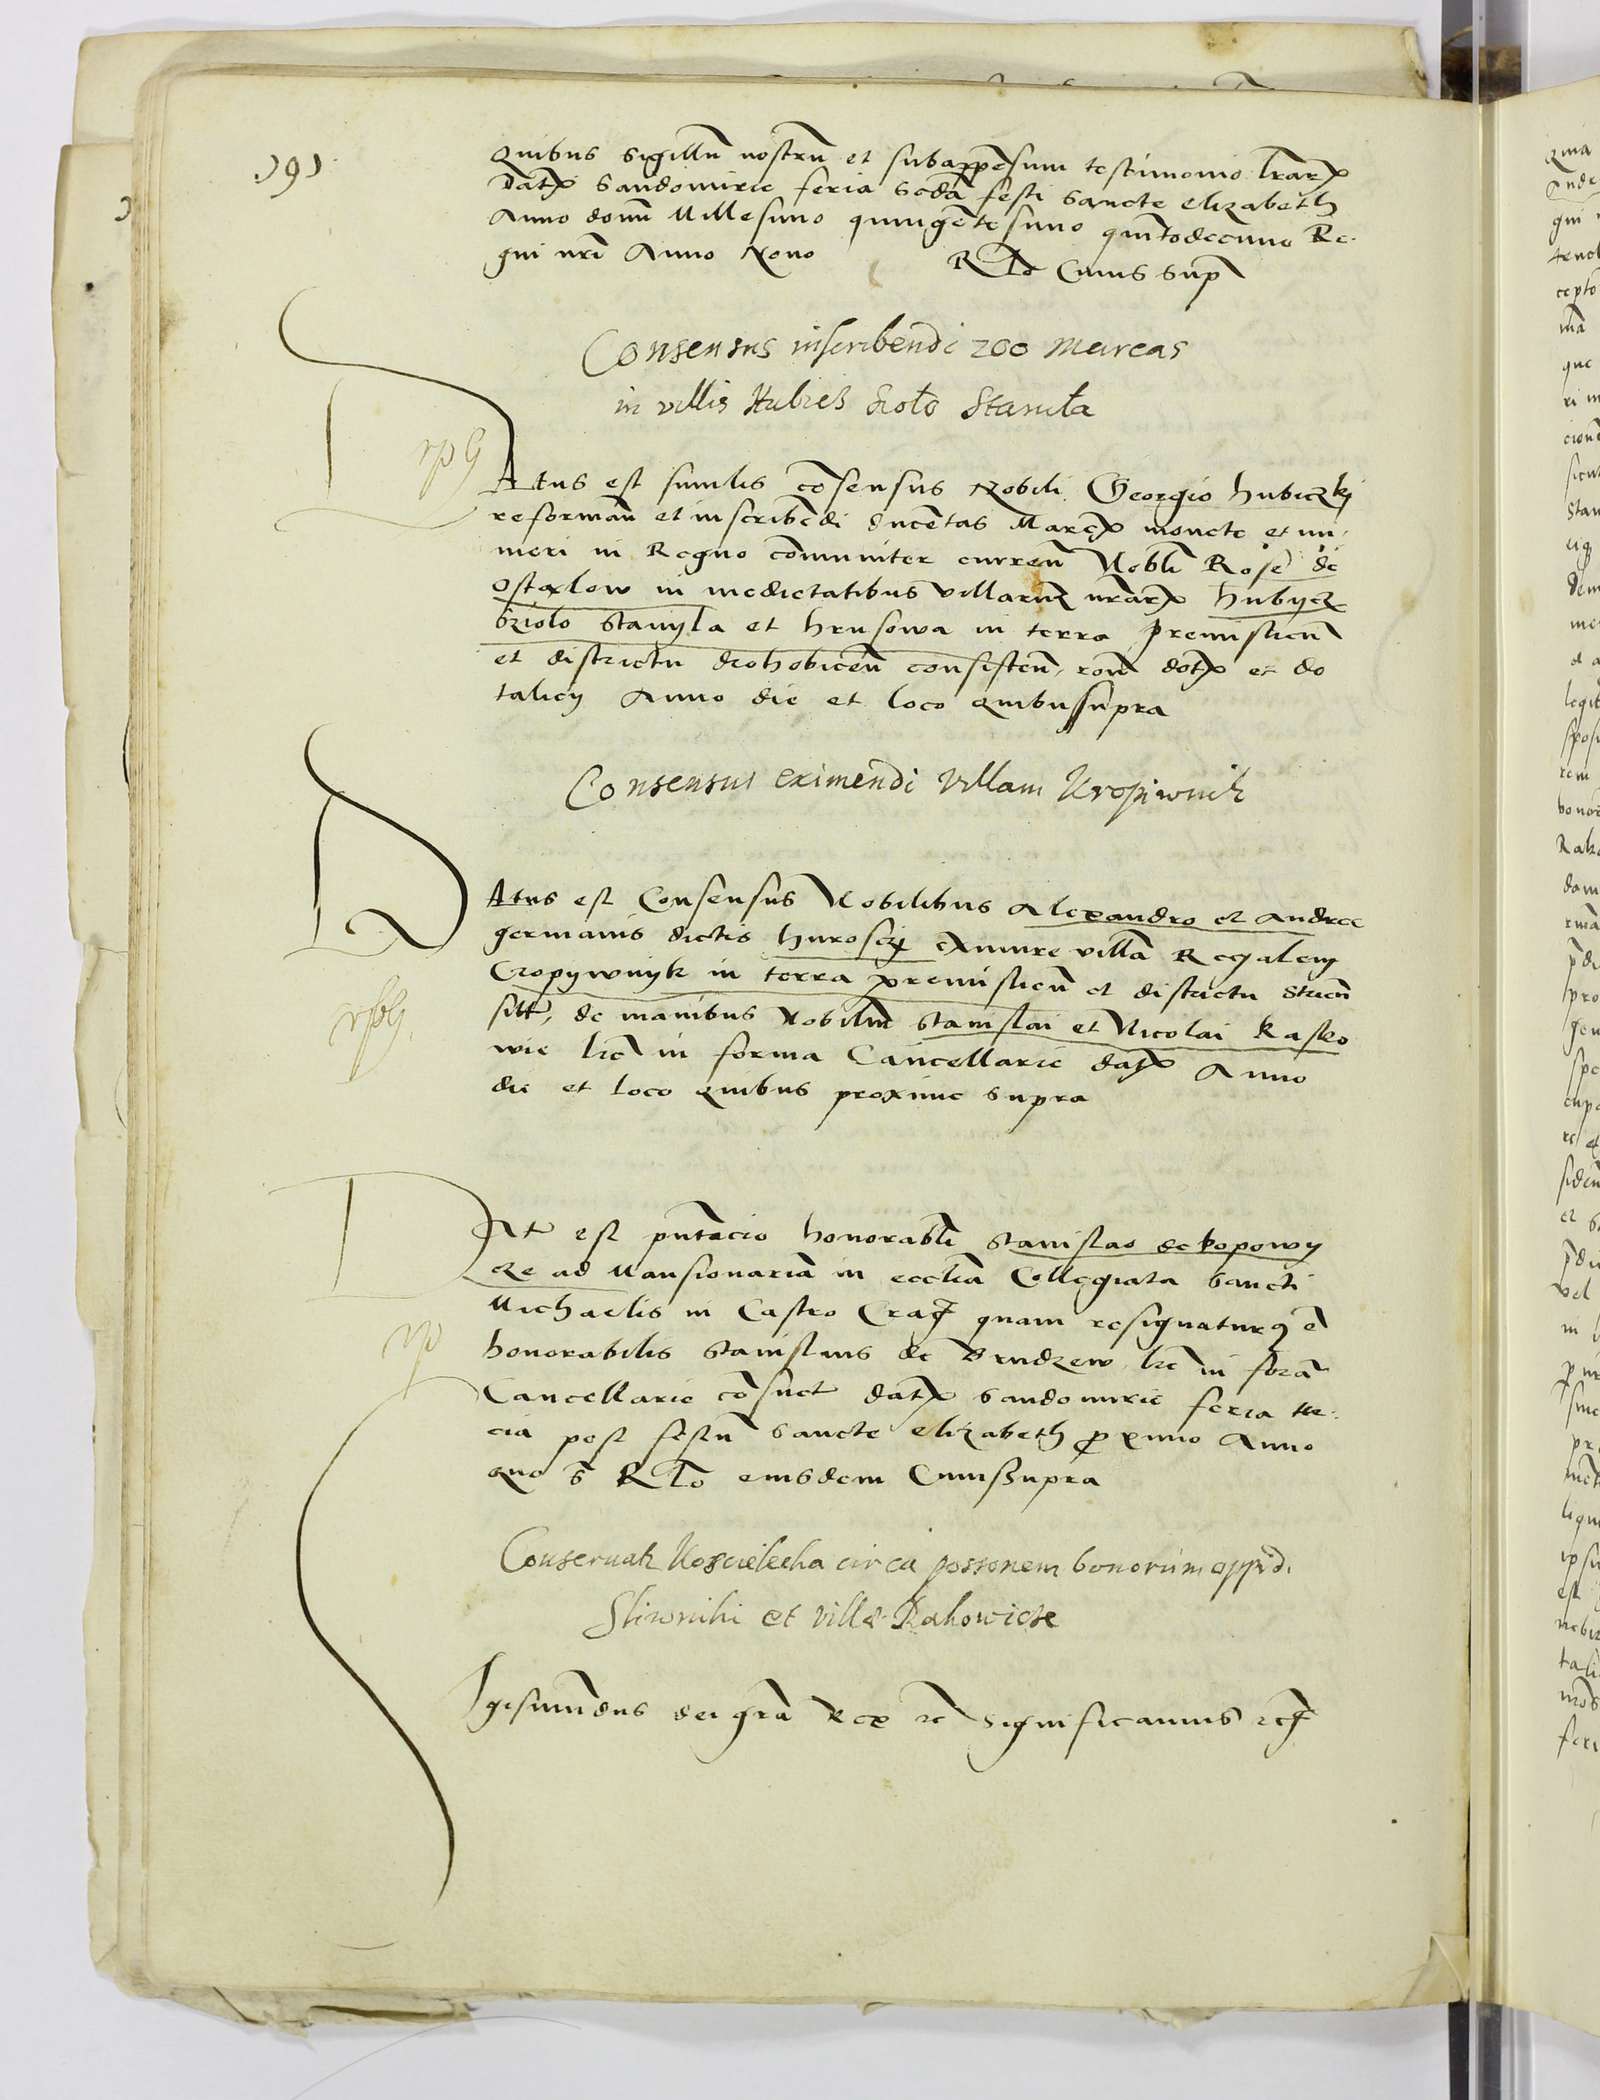 191
Quibus sigillu nostru et subappesum testimonio lrarz
Datz Sandomirie feria scda festi Sancte Elizabeth
Anno domi Millesimo quingetesimo quitodecimo Re-
gni nri Anno Nono Rlo Cuius Sup
Consensus inscribendi 200 marcas
in villis Hubicz Stanila
Datus est similis cosensus Nobili Georgio hubiczky
reforman et inscribedi ducetas Marcz monete et nu-
meri in Regno comuniter curren Nobli Rose de
Ostalow in medietatibus villarum nrarz hubycze
Sziolo Stanyla et hrusowa in terra premislien
et districtu drohobicen consisten, rone dotz et do
talicy Anno die et loco quibussupra
Consensus eximendi villam Kropiwnik
Datus est Consensus Nobilibus Alexandro et Andree
germanis dictis huroscy eximire villa Regalem
Cropywnyk in terra premislien et districtu Strien
sitt, de manibus Nobiliu Stanislai et Nicolai Rasko
wie lre in forma Cancellarie datz Anno
die et loco quibus proxime supra
Dat est pntacio honorabli Stanislao de Popowy
cze ad Mansionaria in ecclia Collegiata Sancti
Michaelis in Castro Crac quam resignaturus e
honorabilis Stanislaus de Brudzew lre in fora
Cancellarie cosuet datz Sandomirie feria ter-
cia post festu Sancte Elizabeth proximo Anno
quo s Rlo eiusdem Cuiussupra
Conservatr Koscielecka circa possonem bonorum oppid.
Sliwniki et villæ Rakowicze
Sigismudus dei gra Rex rc Significamus rc